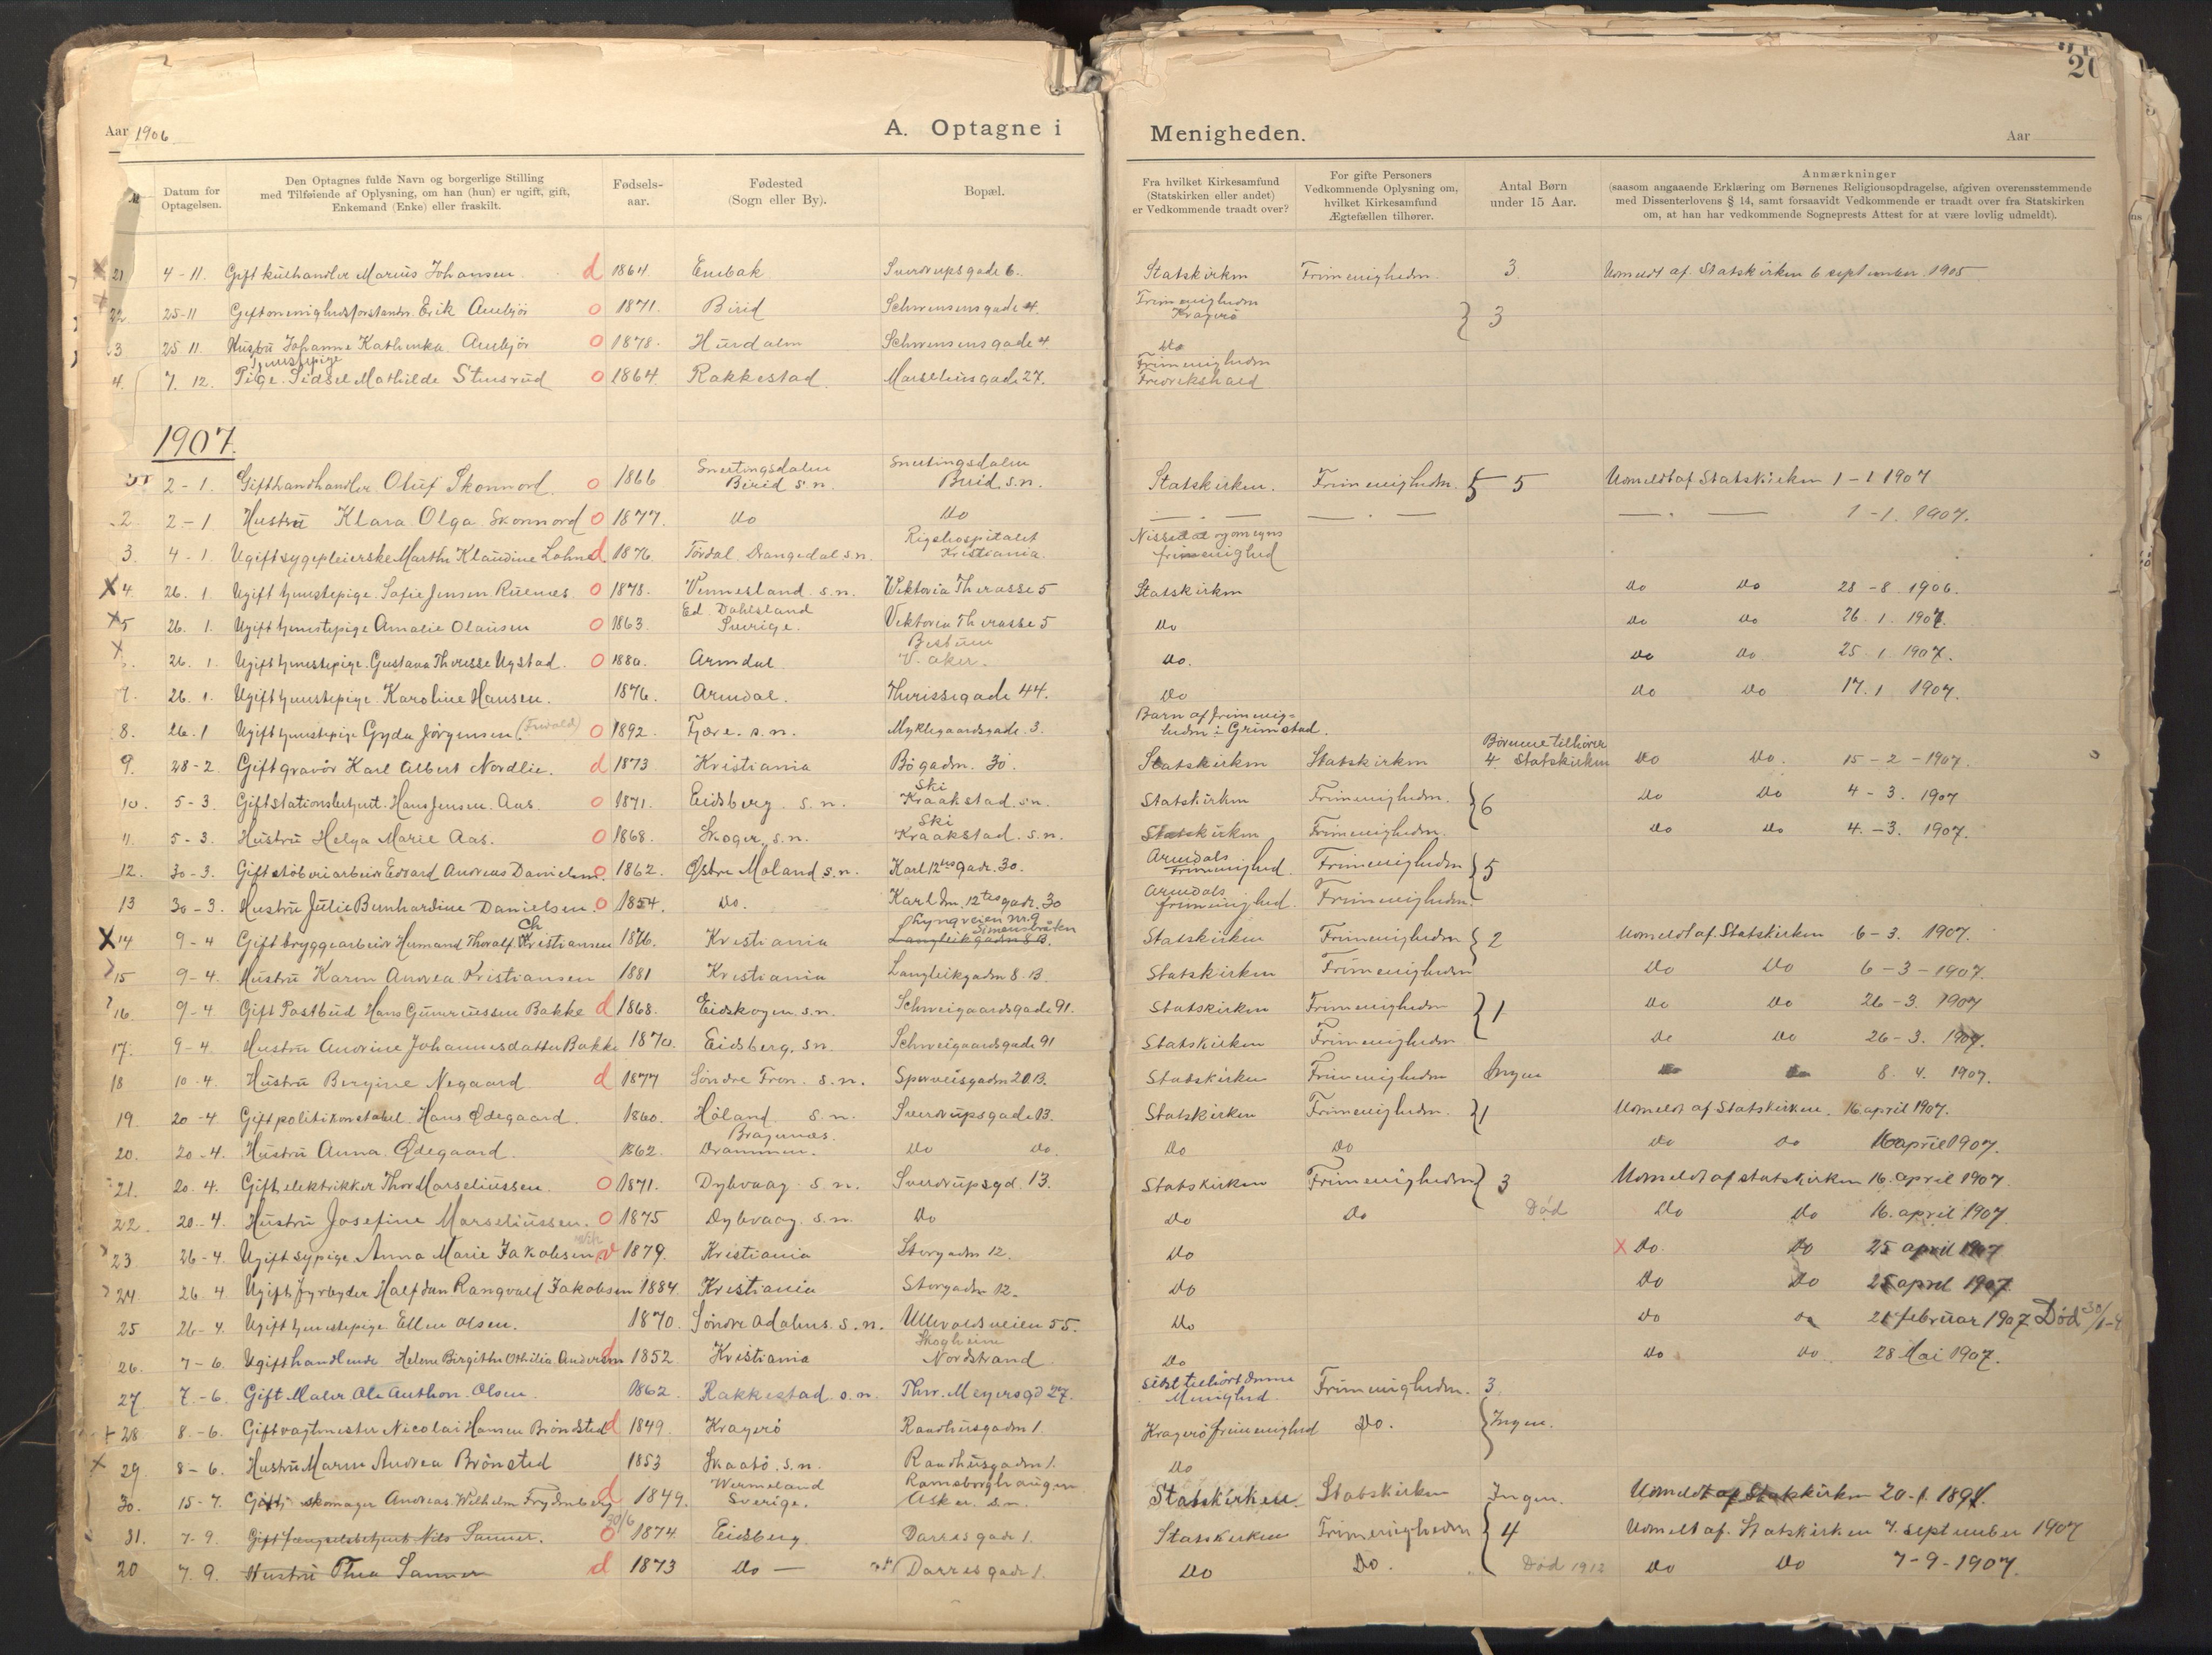 Aar 1906
A. Optagne i Menigheden.
Aar
20
№
Datum for Optagelsen.
Den Optagnes fulde Navn og borgerlige Stilling med Tilføiende af Oplysning, om han (hun) er ugift, gift, Enkemand (Enke) eller fraskilt.
Fødsels-aar.
Fødested (Sogn eller By).
Bopæl.
Fra hvilket Kirkesamfund (Statskirken eller andet) er Vedkommende traadt over?
For gifte Personers Vedkommende Oplysning om, hvilket Kirkesamfund Ægtefællen tilhører.
Antal Børn under 15 Aar.
Anmærkninger (saasom angaaende Erklæring om Børnenes Religionsopdragelse, afgiven overensstemmende med Dissenterlovens § 14, samt forsaavidt Vedkommende er traadt over fra Statskirken om, at han har vedkommende Sogneprests Attest for at være lovlig udmeldt).
x 21 4-11. Gift kulhandler Marius Johansen d 1864 Enebak Sverdrupsgade 6. Statskirken Frimenigheden 3. Udmeldt af Statskirken 6 september 1905
x 22. 25-11 Gift menighedsforstander Erik Anebjør o 1871. Birid Schwensensgade 4. Frimenigheden Kragerø } 3
3 25 11. Hustru Johanne Kathinka Anebjør o 1878. Hurdalen Schwensensgade 4 Do
4. 7. 12. tjenestepige Pige Sidsel Mathilde Stusrud o 1864 Rakkestad Marselisgade 27. Frimenigheden Fredrikshald
1907.
2-1. Gift handhandler Oluf Skonnord o 1866 Snertingsdalen Birid s.n. Snertingsdalen Birid s.n. Statskirken. Frimenigheden. } 5 Udmeldt af Statskirken 1-1 1907
2 2-1 Hustru Klara Olga Skonnord o 1877. Do Do — . — — . — — . — 1-1. 1907.
3. 4-1. Ugift sygepleierske Marthe Klaudine Lohne d 1876 Tørdal Drangedal s.n. Rigshospitalet Kristiania. Nissedal og omegns frimenighed
x 4. 26. 1. Ugift tjenestepige Sofie Jensen o 1878. Vennesland s.n. Viktoria Therasse 5 Statskirken Do Do 28-8. 1906.
x 5 26. 1. Ugift tjenestepige Amalie Olausen o 1863. Ed. Dahlsland Sverige. Viktoria Therasse 5 Do Do Do 26. 1. 1907.
x 26. 1. Ugift tjenestepige Gustava Therese Ugstad. o 1880. Arendal Bestum V. aker. Do. Do Do 25. 1. 1907.
7. 26. 1. Ugift tjenestepige Karoline Hansen. 1876. Arendal. Therisegade 44. Do Do Do 17. 1 1907.
8. 26. 1 Ugift tjenestepige Gyda Jørgensen. o 1892. Fjære. s.n. Myklegaardsgade. 3. Barn af frimenigheden i Grimstad.
9. 28-2. Gift gravør Karl Albert Nordlie. d 1873 Kristiania Bøgaden. 30. Statskirken Statskirken Børnene tilhører 4. Statskirken Do Do. 15-2-1907.
10. 5-3. Gift stationsbetjent Hans Jensen Aas. o 1871. Eidsberg s.n. Ski Kraakstad s.n. Statskirken Frimenigheden. } 6 Do Do 4-3. 1907
11. 5-3. Hustru Helga Marie Aas. o 1868. Skoger s.n. Ski Kraakstad. s.n. Statskirken Frimenigheden. Do Do 4.-3. 1907.
12. 30-3. Gift støberiarbeider Edvard Andreas Danielsen. o 1862. Østre Moland s.n. Karl 12tes gade. 30. Arendals Frimenighed. Frimenigheden } 5
13 30-3. Hustru Julie Bernhardine Danielsen. o 1854. Do. Karl den 12tes gade. 30 Arendals frimenighed. Frimenigheden.
x 14 9-4 Gift bryggearbeider Hermand Thoralf Christiansen 1876. Kristiania Lyngveien nr. 9 Simensbråten Langleikgaden 8 B. Statskirken Frimenigheden } 2 Udmeldt af Statskirken 6-3. 1907.
15 9-4. Hustru Karen Andrea Kristiansen 1881 Kristiania Langleikgaden 8. B Statskirken Frimenigheden Do Do 6-3-1907.
16. 9-4 Gift Postbud Hans Gundersen Bakke d 1868. Eidskogen s.n. Schweigaardsgade 91. Statskirken Frimenigheden } 1 Do Do 26-3. 1907
17. 9-4. Hustru Andrine Johannesdatter Bakke 1870. Eidsberg. s.n. Schweigaardsgade 91 Statskirken Frimenigheden Do Do 26-3. 1907.
18 10-4. Hustru Bergine Negaard d 1877 Søndre Fron. s.n. Sperveisgaden 20. B. Statskirken Frimenigheden Ingen 8. 4. 1907.
19. 20-4 Gift politikonstabel Hans Ødegaard. 1860. Høland s.n. Sverdrupsgade 13. Statskirken Frimenigheden. } 1 Udmeldt af Statskirken. 16 april 1907.
20. 20-4. Hustru Anna Ødegaard. 1862. Bragernæs. Drammen. Do Do. Do Do Do Do 16 april 1907.
21. 20. 4. Gift elektrikker Thor Marseliussen o 1871. Dybvaag s.n. Sverdrupsgd. 13. Statskirken Frimenigheden } 3 Udmeldt af statskirken 16. april 1907.
22. 20-4. Hustru Josefine Marseliussen. o 1875 Dybvaag. s.n. Do Do Do Død Do Do 16. april 1907.
23 26-4. Ugift sypige Anna Marie Jakobsen 1879. Kristiania Storgaden 12. Do x Do. Do 25 april 1907
24 26. 4 Ugift fyrbyder Halfdan Rangvald Jakobsen 1884 Kristiania Storgaden 12. Do Do Do 25 april 1907.
25 26-4. Ugift tjenestepige Ellen Olsen. 1870. Søndre Adalens. s.n. Ullevoldsveien 55. Do Do Do 21 februar 1907 Død
26. 7-6. Ugift handlende Helene Birgithe Othilia Andersen d 1852 Kristiania Skogheim Nordstrand Do Do Do 28 Mai 1907.
27. 7-6. Gift Maler Ole Anthon Olsen. 1862. Rakkestad s.n. Thv. Meyersgd 27. sidst tilhørt denne Menighed. Frimenigheden. 3.
+ 28 8.-6. Gift vagtmester Nicolai Hansen Brønsted d 1849. Kragerø Raadhusgaden 1. Kragerø frimenighed Do. } Ingen.
x 29. 8-6. Hustru Maren Andrea Brønsted 1853 Skaatø. s.n. Raadhusgaden 1. Do
30. 15-7. Gift skomager Andreas Wilhelm Frydenberg d 1849. Wermeland Sverige. Ramsborghaugen Asker s.n. Statskirken Statskirken Ingen. Udmeldt af Statskirken 20-1. 1894.
31. 7-9. Gift fængselsbetjent Nils Sanner. 30/6 o 1874 Eidsberg Darresgade 1. Statskirken Frimenigheden } 4 Udmelt af Statskirken 7. september 1907
20 7. 9. Hustru Thea Sanner d 1873 Do — Darresgade 1. Do Do. Død 1912 Do Do 7-9-1907.